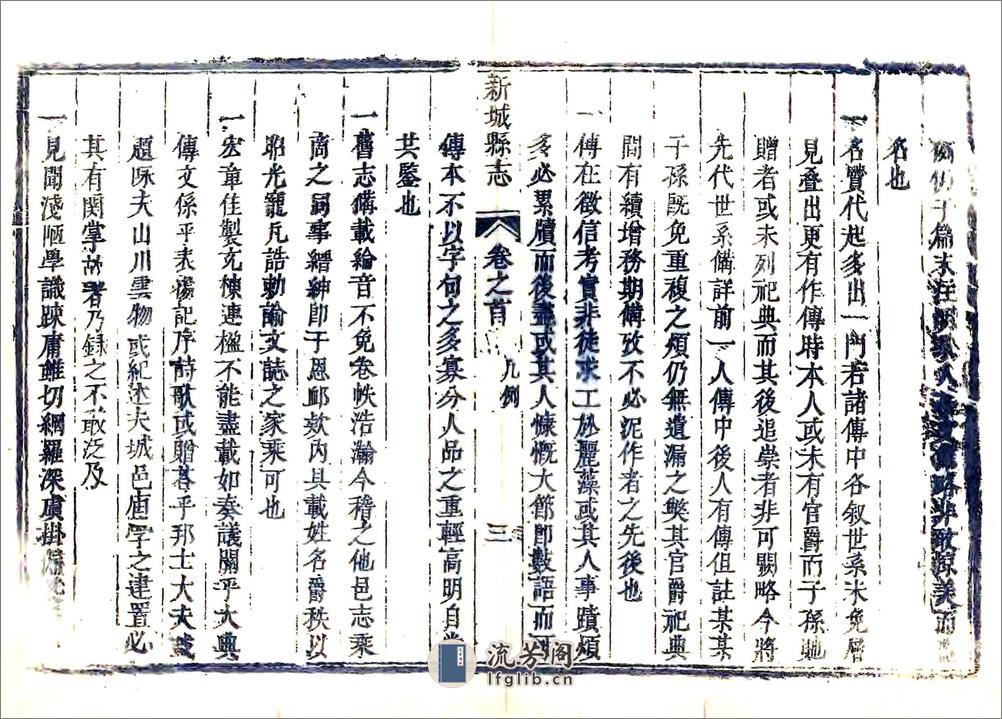 篇末注
名也
一名賢代起多出一門若諸傳中各叙世系未免層
見叠出更有作傳時本人或未有官爵而子孫貤
贈者或未列祀典而其後追崇者非可闕略今將
先代世系備詳前一人傳中後人有傳但註某某
子孫既免重複之煩仍無遺漏之弊其官爵祀典
間有續增務期備攷不必泥作者之先後也
一傳在徵信考實非徒求工妙麗藻或其人事蹟頗
多必累牘而後盡或其人慷慨大節即數語而可
傳本不以字句之多寡分人品之重輕高明自
共鑒也
新城縣志 卷之首 凡例 三
一舊志備載綸音不免卷帙浩瀚今稽之他邑志乘
商之同事縉紳即于恩邮欵内具載姓名爵秩以
昭光寵凡誥勅諭文誌之家乘可也
一宏章佳製充棟連楹不能盡載如奏議關乎大典
傳文係乎表揚記序詩歌或贈荅乎邦士大夫或
題咏夫山川雲物或紀述夫城邑庙學之建置必
其有関掌故者乃録之不敢泛及
一見聞淺陋學識踈庸雖切網羅深虞掛
流芳阁
lfglib.cn